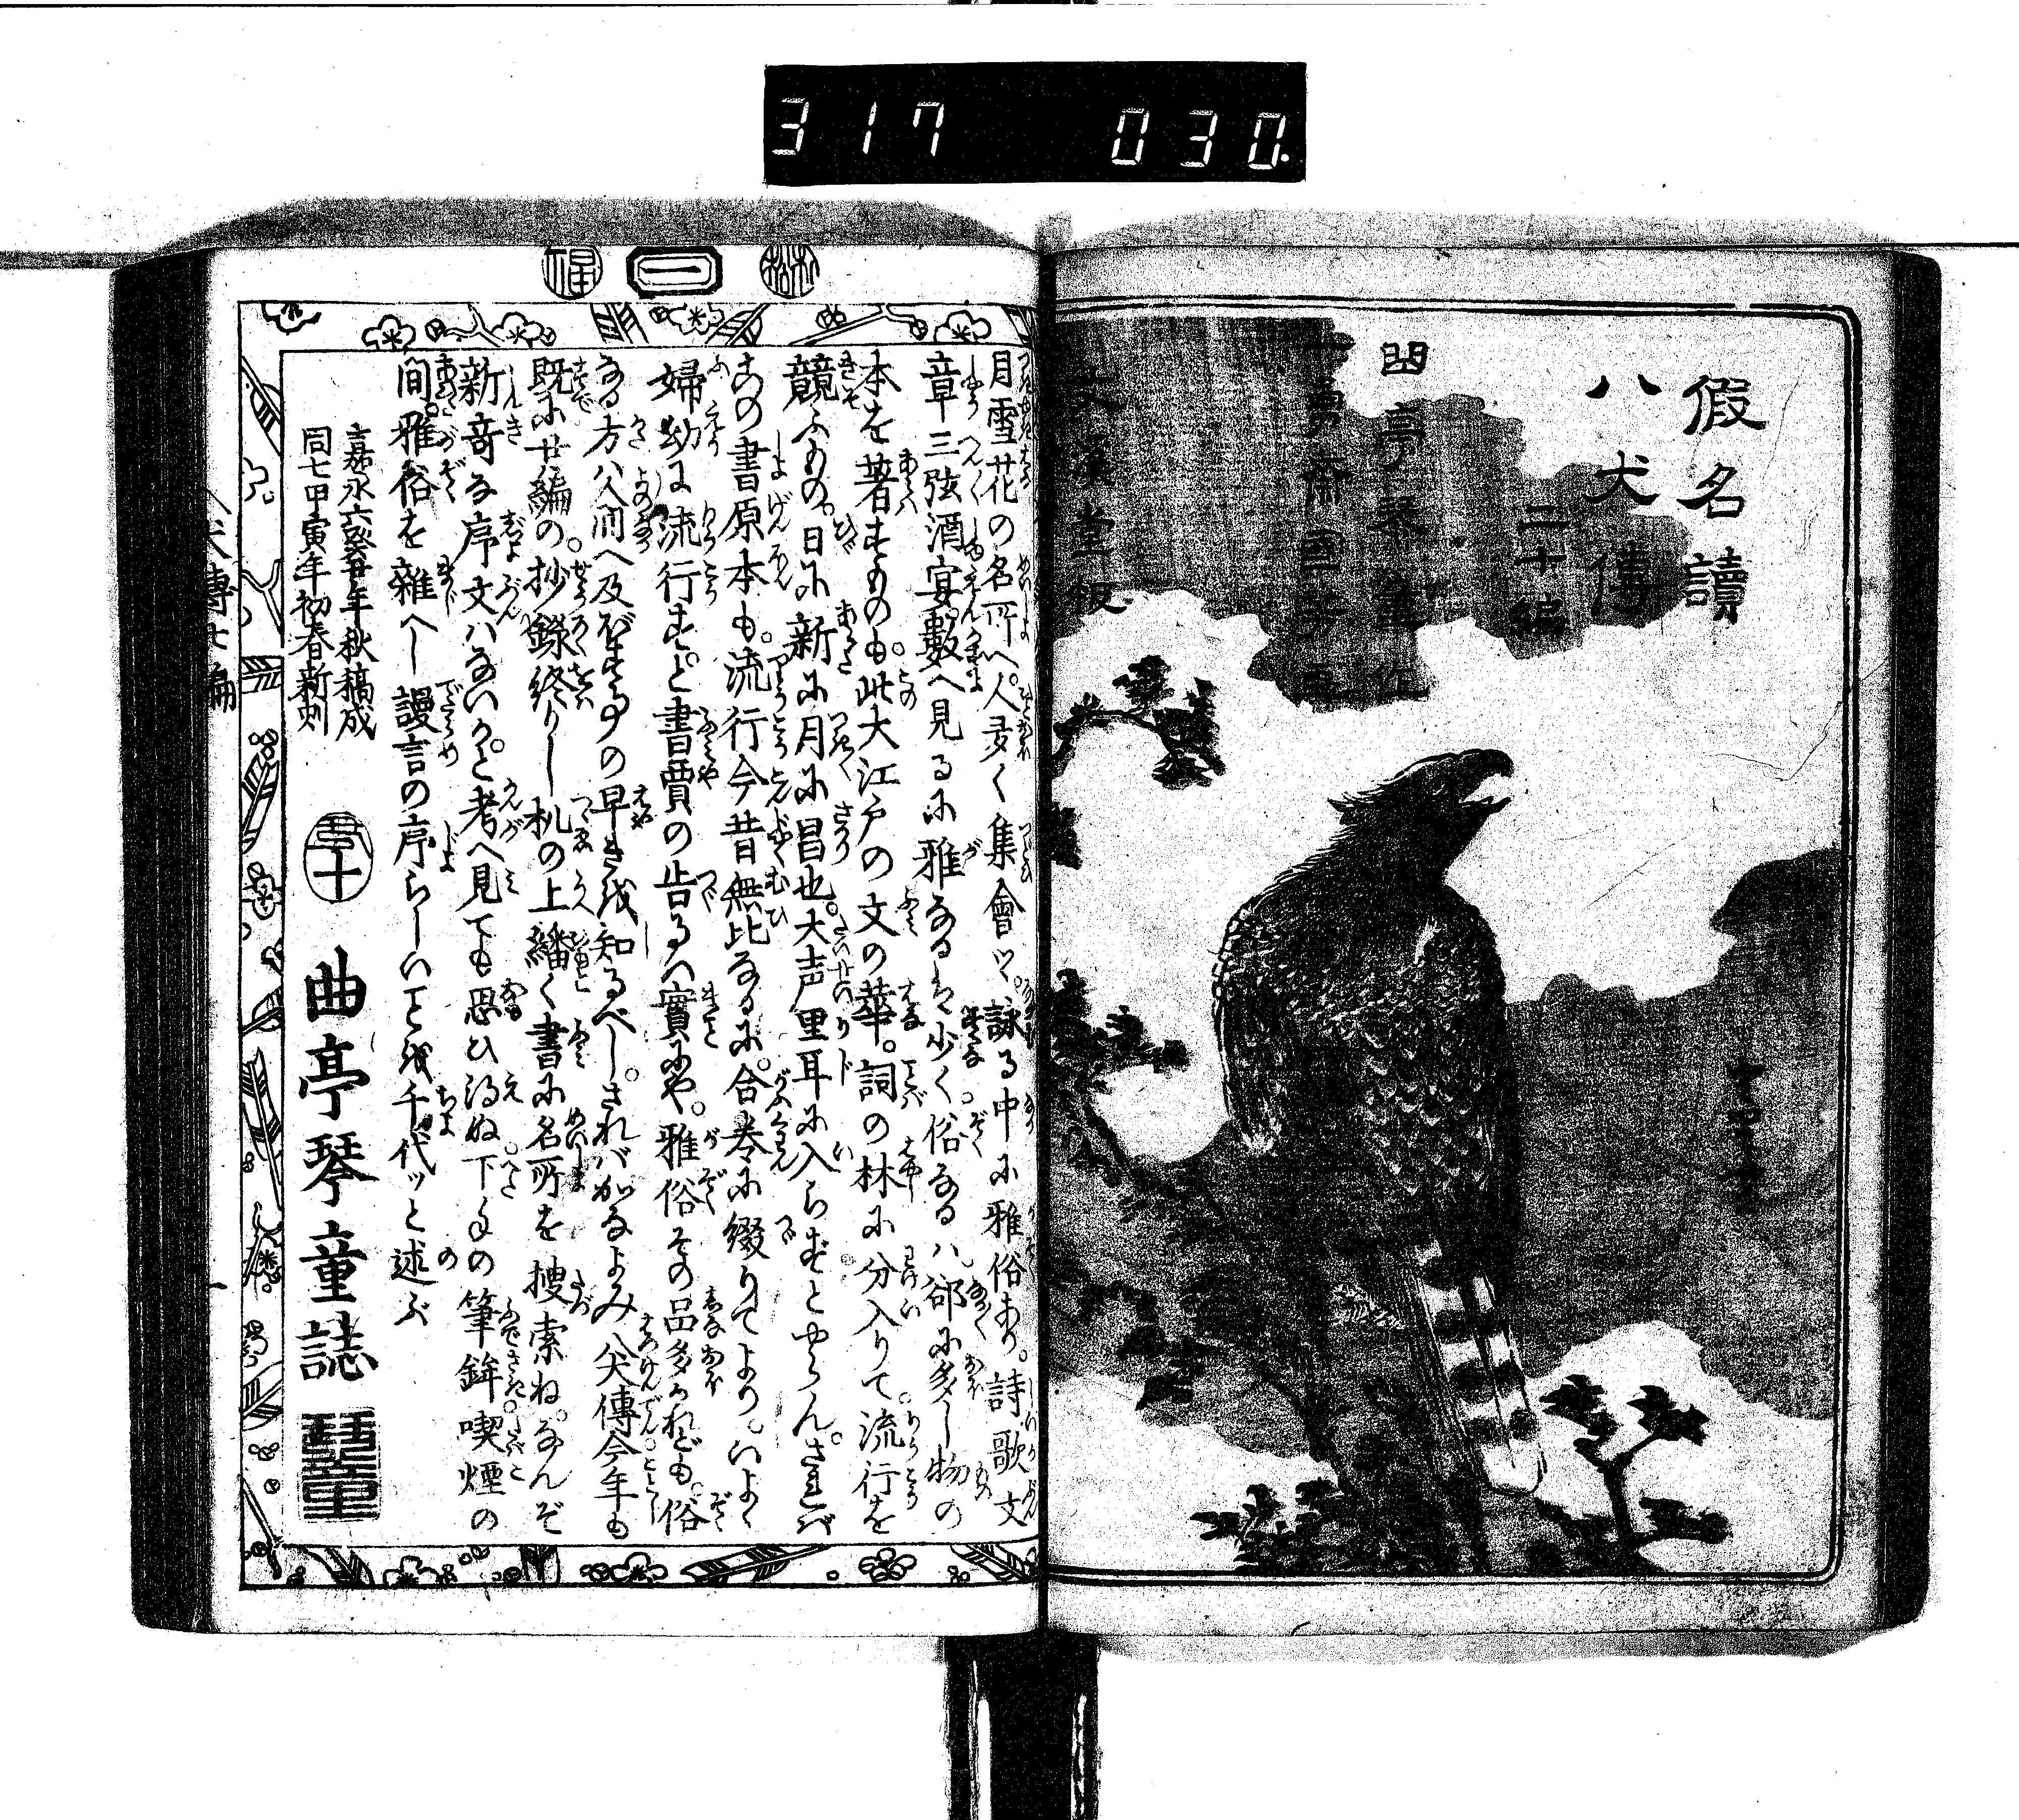 317 030.
假名讀
八犬傳
二十編
曲亭琴童作
一勇齋國芳画
文溪堂板
松
一
福
月雪花の名所へ。人多く集會ツ。詠る中に雅俗あり。詩歌文
章三弦酒宴。數へ見るに雅なるは少く。俗なるハ郤に多し物の
本を著すものも。此大江戸の文の華。詞の林に分入りて。流行を
競ふもの。日に新に月に昌也。大声里耳に入らずとやらん。されば
この書原本も。流行今昔無比なるに。合巻に綴りてより。いよく
婦幼に流行すと書賈の告るハ實にや。雅俗その品多かれども。俗
なる方ハ人間へ及びする事の早きを知るべし。さればかなよみ八犬傳今年も
既に廿編の抄錄終りし机の上繙く書に名所を捜索ね。なんぞ
新奇な序文ハないかと。考へ見ても思ひ得ぬ下手の筆鉾喫煙の
間。雅俗を雜へし謾言の序らしいことを千代ッと述ぶ
嘉永六癸丑年秋稿成
同七甲寅年初春新刻
曲亭琴童誌
琴童
八犬傳廿編
一